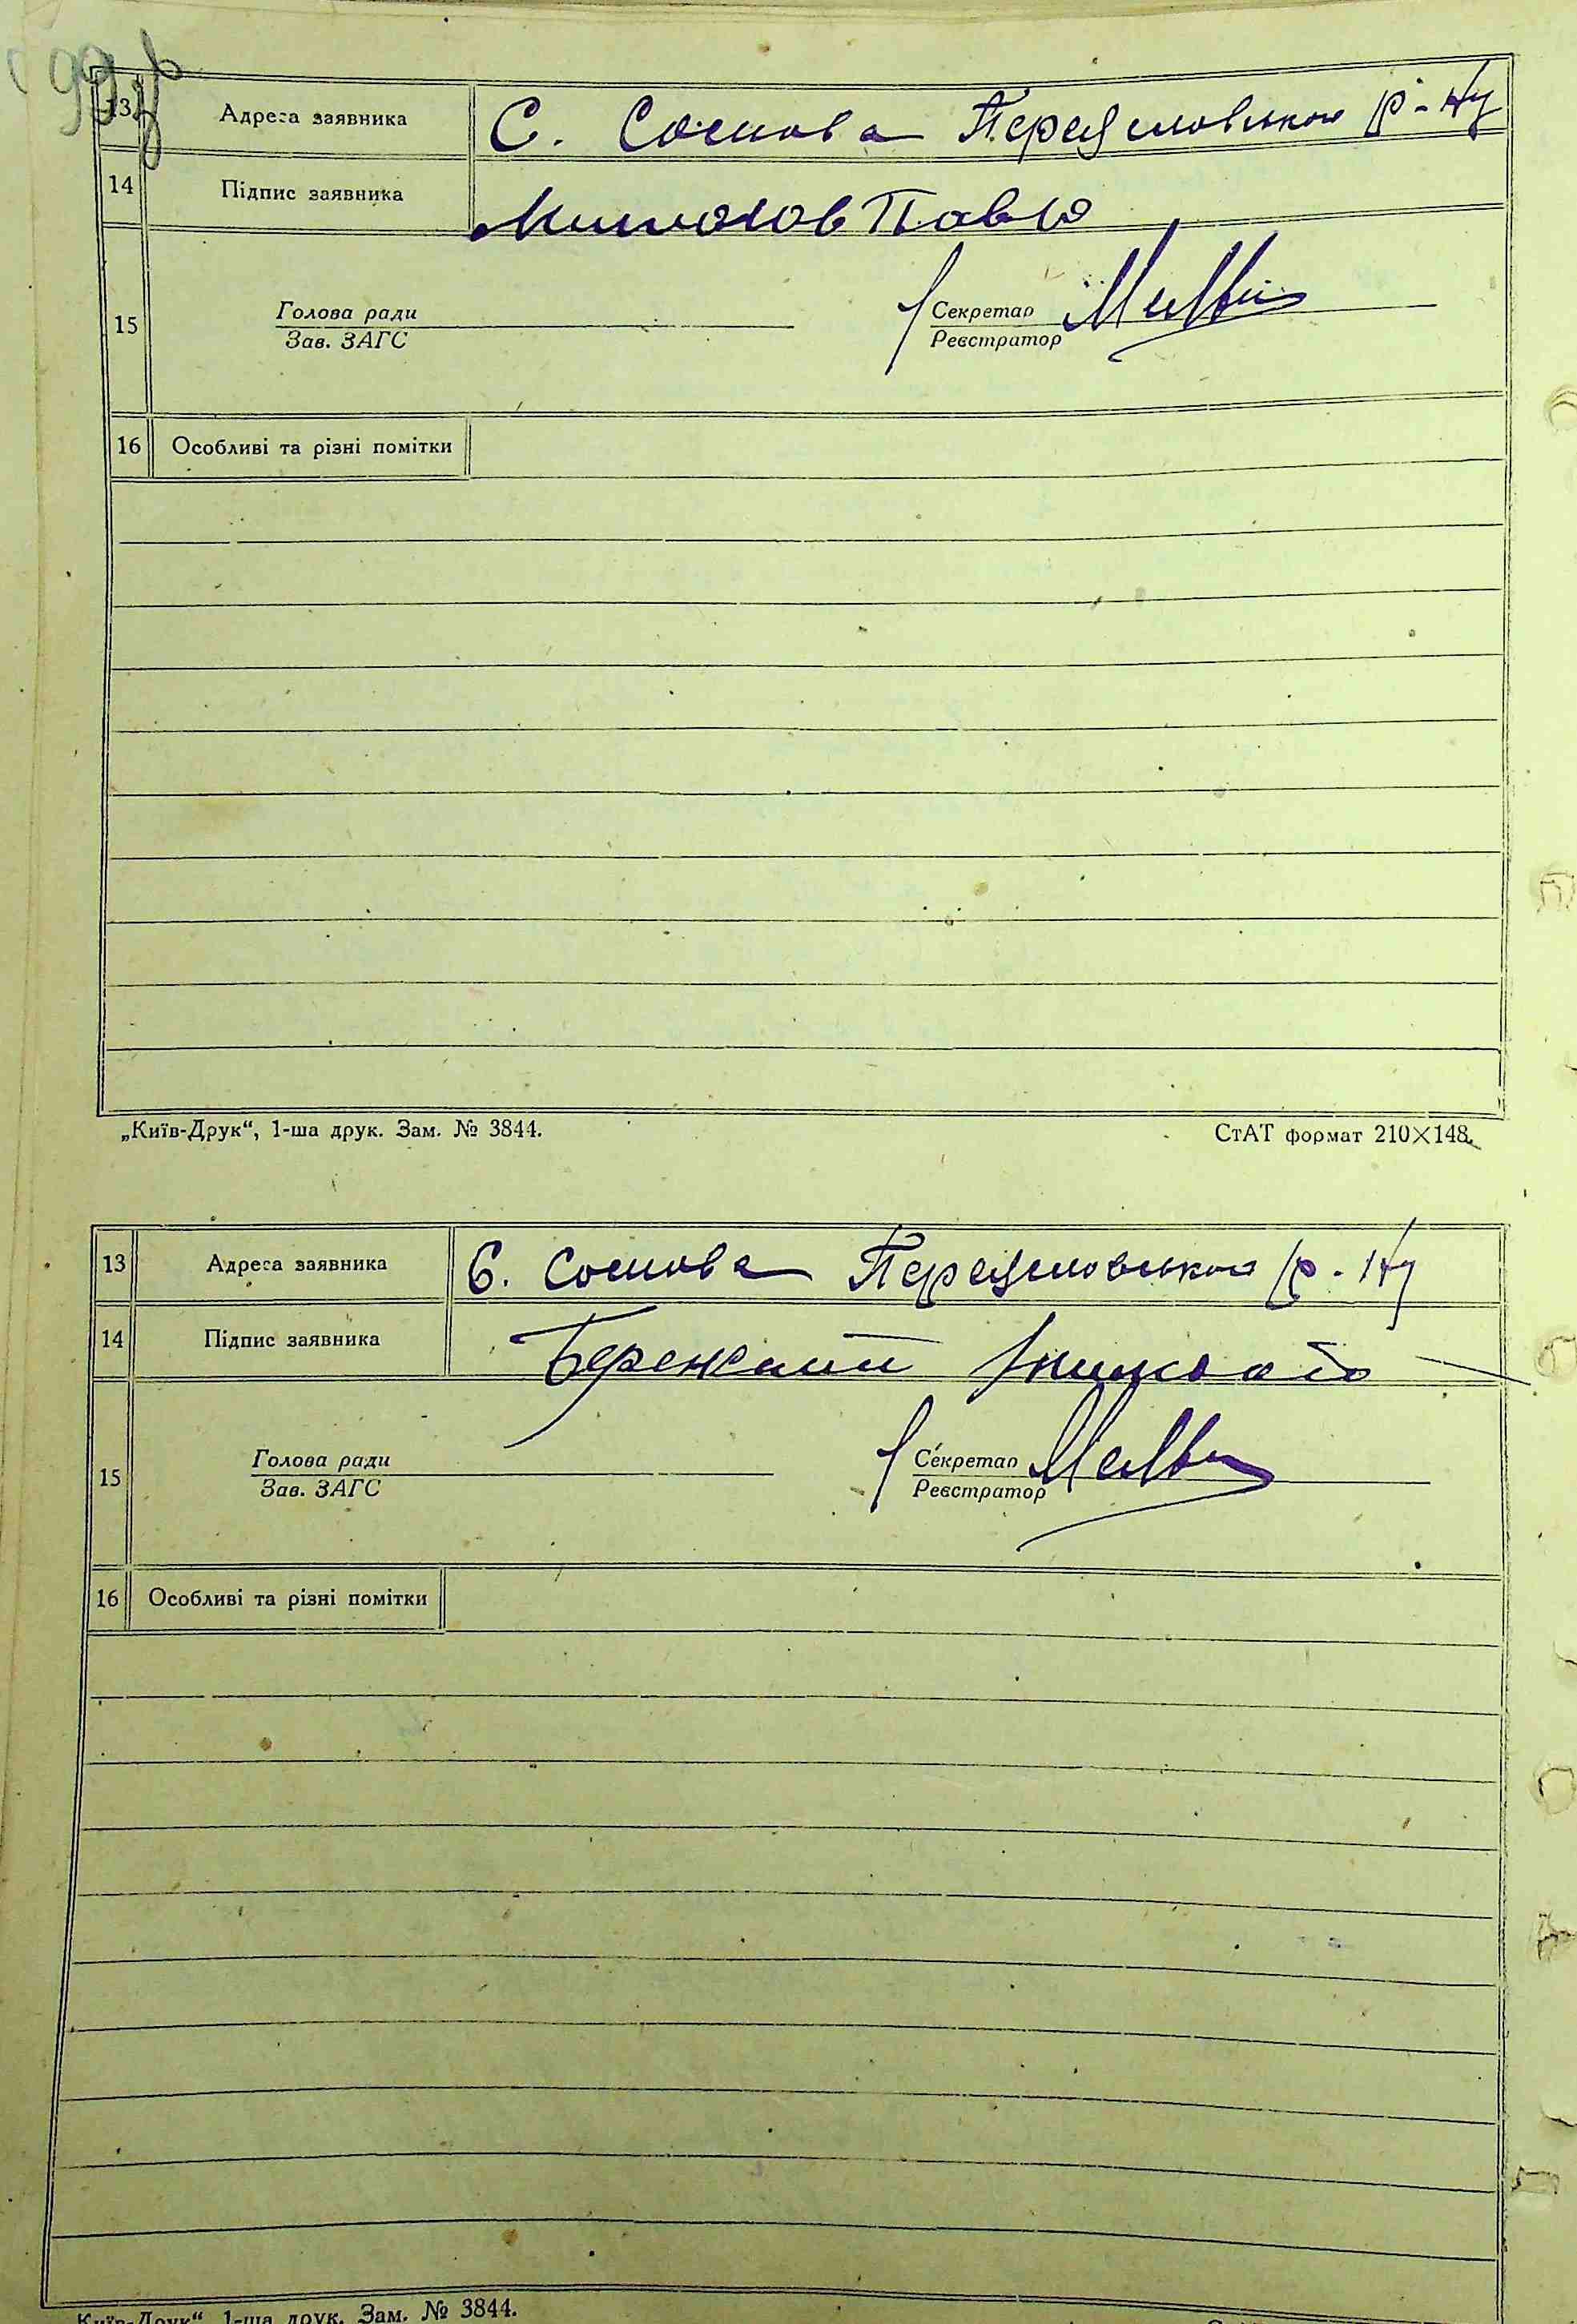 13 Адреса заявника С. Соснова Переяславського р-ну
14 Підпис заявника Павло
Голова ради Секретар
15
Зав. ЗАГС Реєстратор
16 Особливі та різні помітки
„Київ-Друк“, 1-ша друк. Зам. № 3844. СтАТ формат 210×148.
13 Адреса заявника С. Соснова Переяславського р-ну
14 Підпис заявника Бережний
Голова ради Секретар
15
Зав. ЗАГС Реєстратор
16 Особливі та різні помітки
„Київ-Друк“, 1-ша друк. Зам. № 3844.